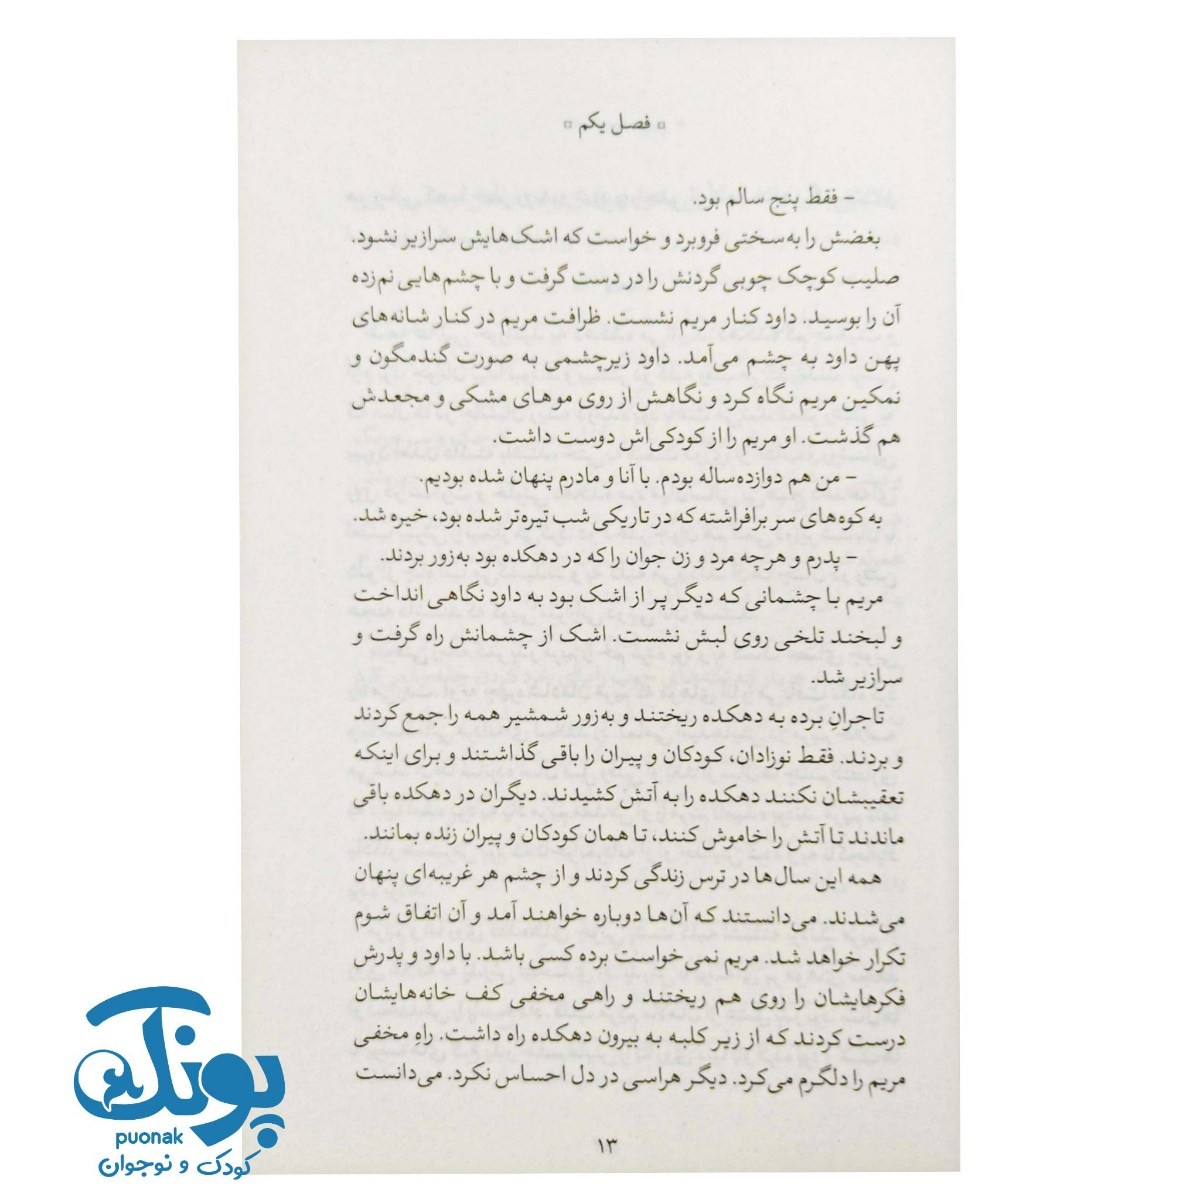 ▫ فصل یکم ▫
– فقط پنج سالم بود.
بغضش را به‌سختی فروبرد و خواست که اشک‌هایش سرازیر نشود.
صلیب کوچک چوبی گردنش را در دست گرفت و با چشم‌هایی نم‌زده
آن را بوسید. داود کنار مریم نشست. ظرافت مریم در کنار شانه‌های
پهن داود به چشم می‌آمد. داود زیرچشمی به صورت گندمگون و
نمکین مریم نگاه کرد و نگاهش از روی موهای مشکی و مجعدش
هم گذشت. او مریم را از کودکی‌اش دوست داشت.
– من هم دوازده‌ساله بودم. با آنا و مادرم پنهان شده بودیم.
به کوه‌های سر برافراشته که در تاریکی شب تیره‌تر شده بود، خیره شد.
– پدرم و هرچه مرد و زن جوان را که در دهکده بود به‌زور بردند.
مریم با چشمانی که دیگر پر از اشک بود به داود نگاهی انداخت
و لبخند تلخی روی لبش نشست. اشک از چشمانش راه گرفت و
سرازیر شد.
تاجرانِ برده به دهکده ریختند و به‌زور شمشیر همه را جمع کردند
و بردند. فقط نوزادان، کودکان و پیران را باقی گذاشتند و برای اینکه
تعقیبشان نکنند دهکده را به آتش کشیدند. دیگران در دهکده باقی
ماندند تا آتش را خاموش کنند، تا همان کودکان و پیران زنده بمانند.
همه این سال‌ها در ترس زندگی کردند و از چشم هر غریبه‌ای پنهان
می‌شدند. می‌دانستند که آن‌ها دوباره خواهند آمد و آن اتفاق شوم
تکرار خواهد شد. مریم نمی‌خواست برده کسی باشد. با داود و پدرش
فکرهایشان را روی هم ریختند و راهی مخفی کف خانه‌هایشان
درست کردند که از زیر کلبه به بیرون دهکده راه داشت. راهِ مخفی
مریم را دلگرم می‌کرد. دیگر هراسی در دل احساس نکرد. می‌دانست
۱۳
پونک
puonak
کودک و نوجوان